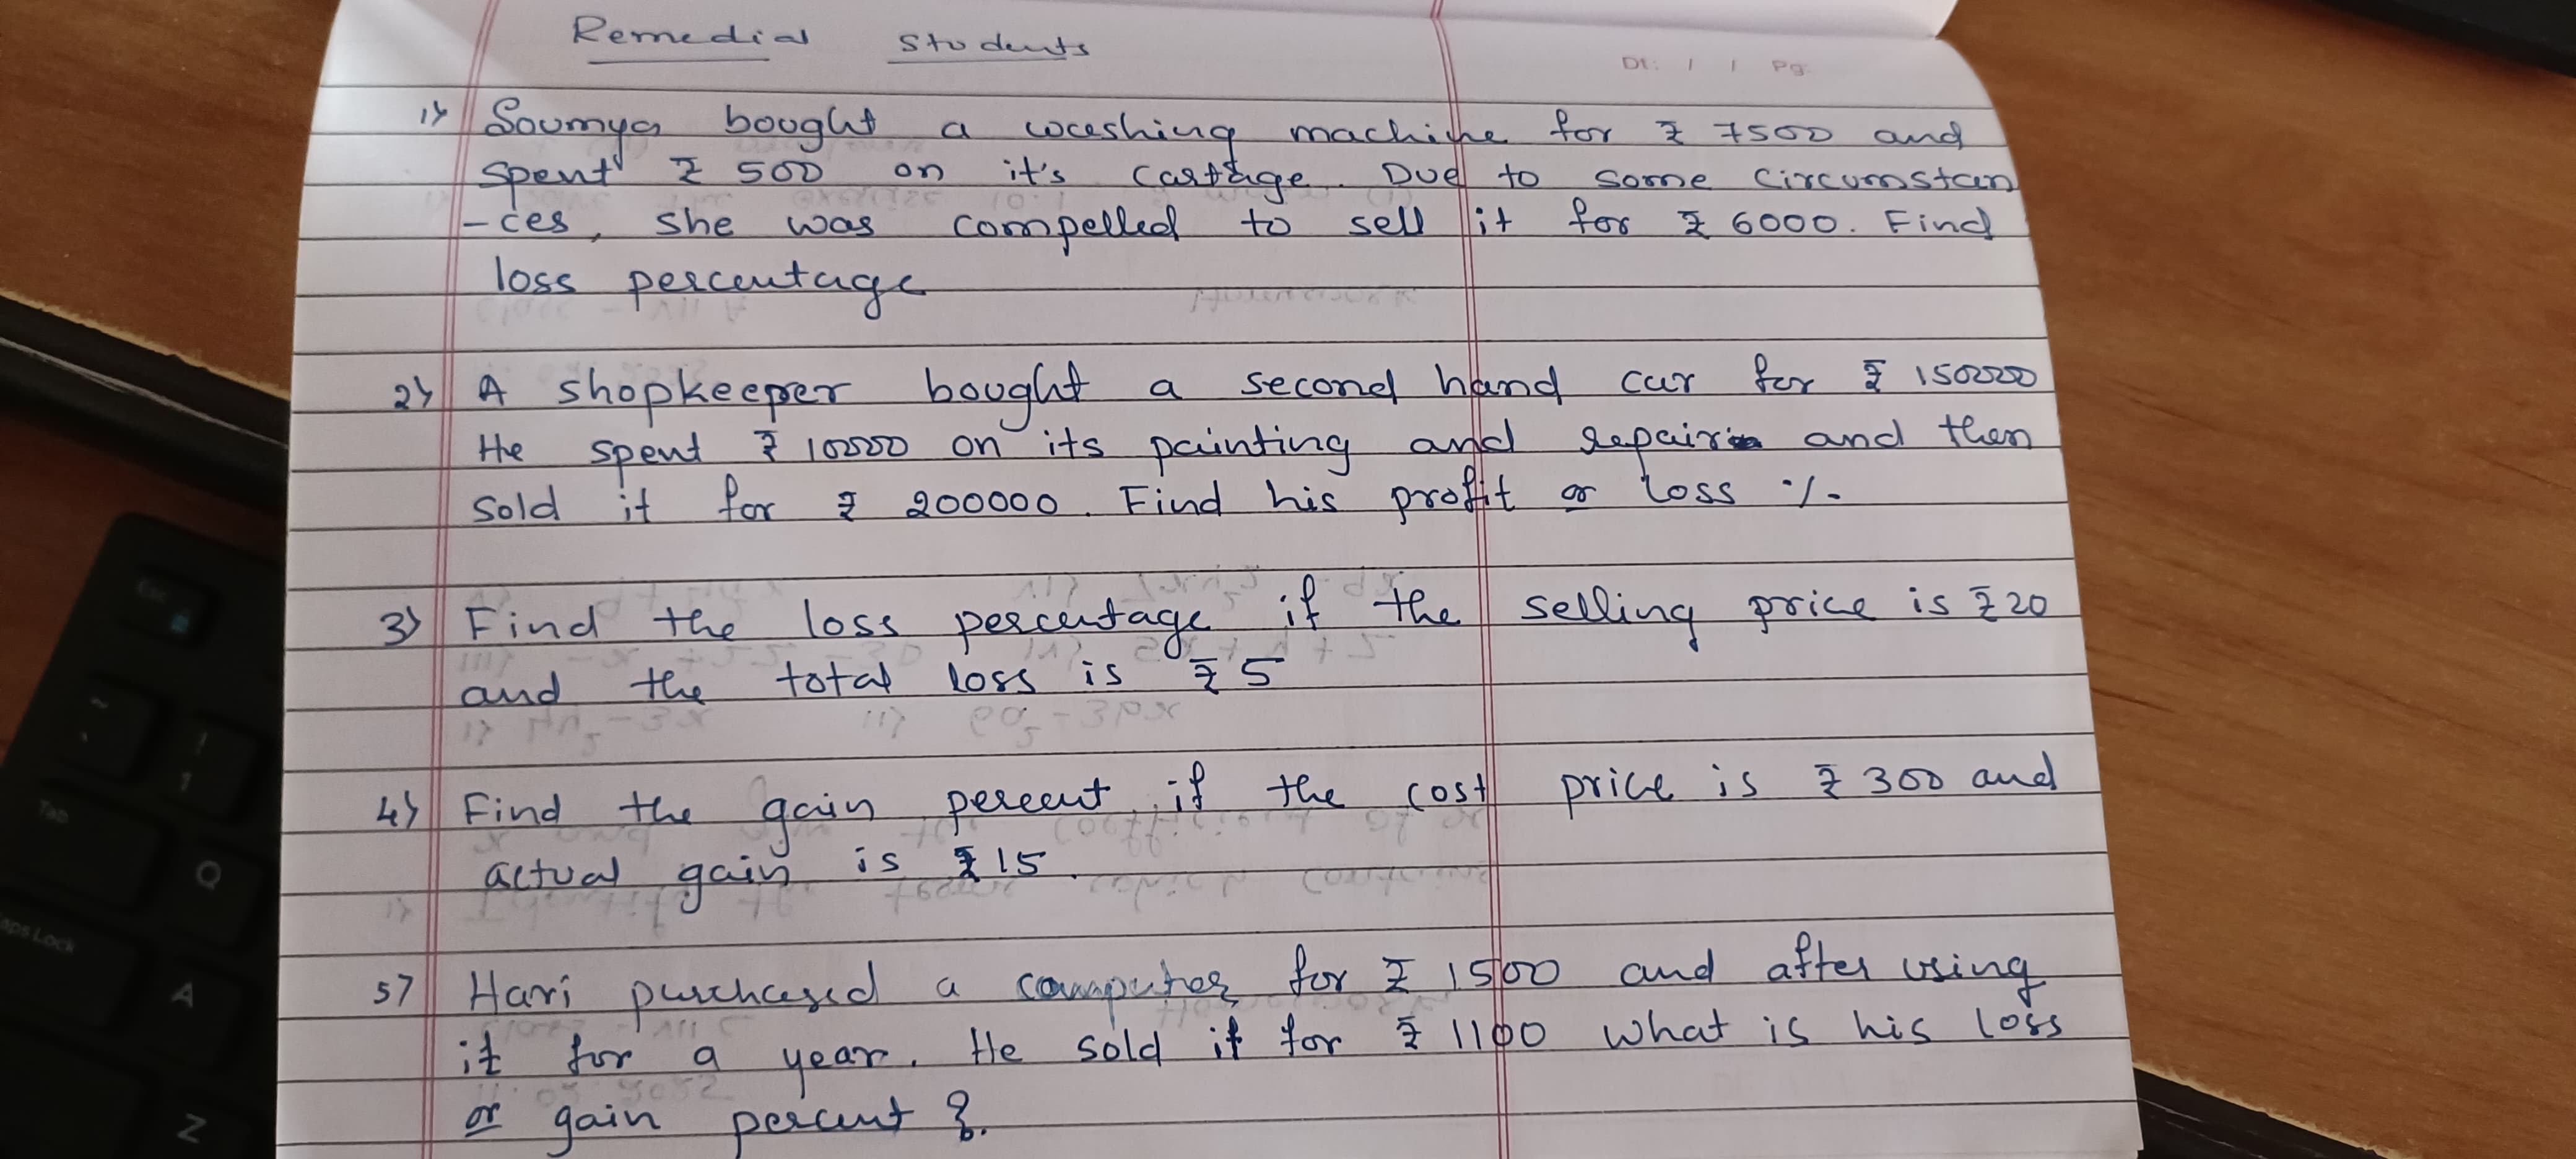 Remedial Students
Dt: / / Pg.
1) Soumya bought a washing machine for ₹ 7500 and
spent ₹ 500 on it's cartage. Due to some circumstan
-ces, she was compelled to sell it for ₹ 6000. Find
loss percentage
2) A shopkeeper bought a second hand car for ₹ 150000
He spent ₹ 10000 on its painting and repair and then
sold it for ₹ 200000. Find his profit or loss %
3) Find the loss percentage if the selling price is ₹ 20
and the total loss is ₹ 5
4) Find the gain percent if the cost price is ₹ 300 and
actual gain is ₹ 15.
5) Hari purchased a computer for ₹ 1500 and after using
it for a year. He sold it for ₹ 1100 what is his loss
or gain percent ?
Esc
~
`
!
1
Tab
Q
Caps Lock
A
Z